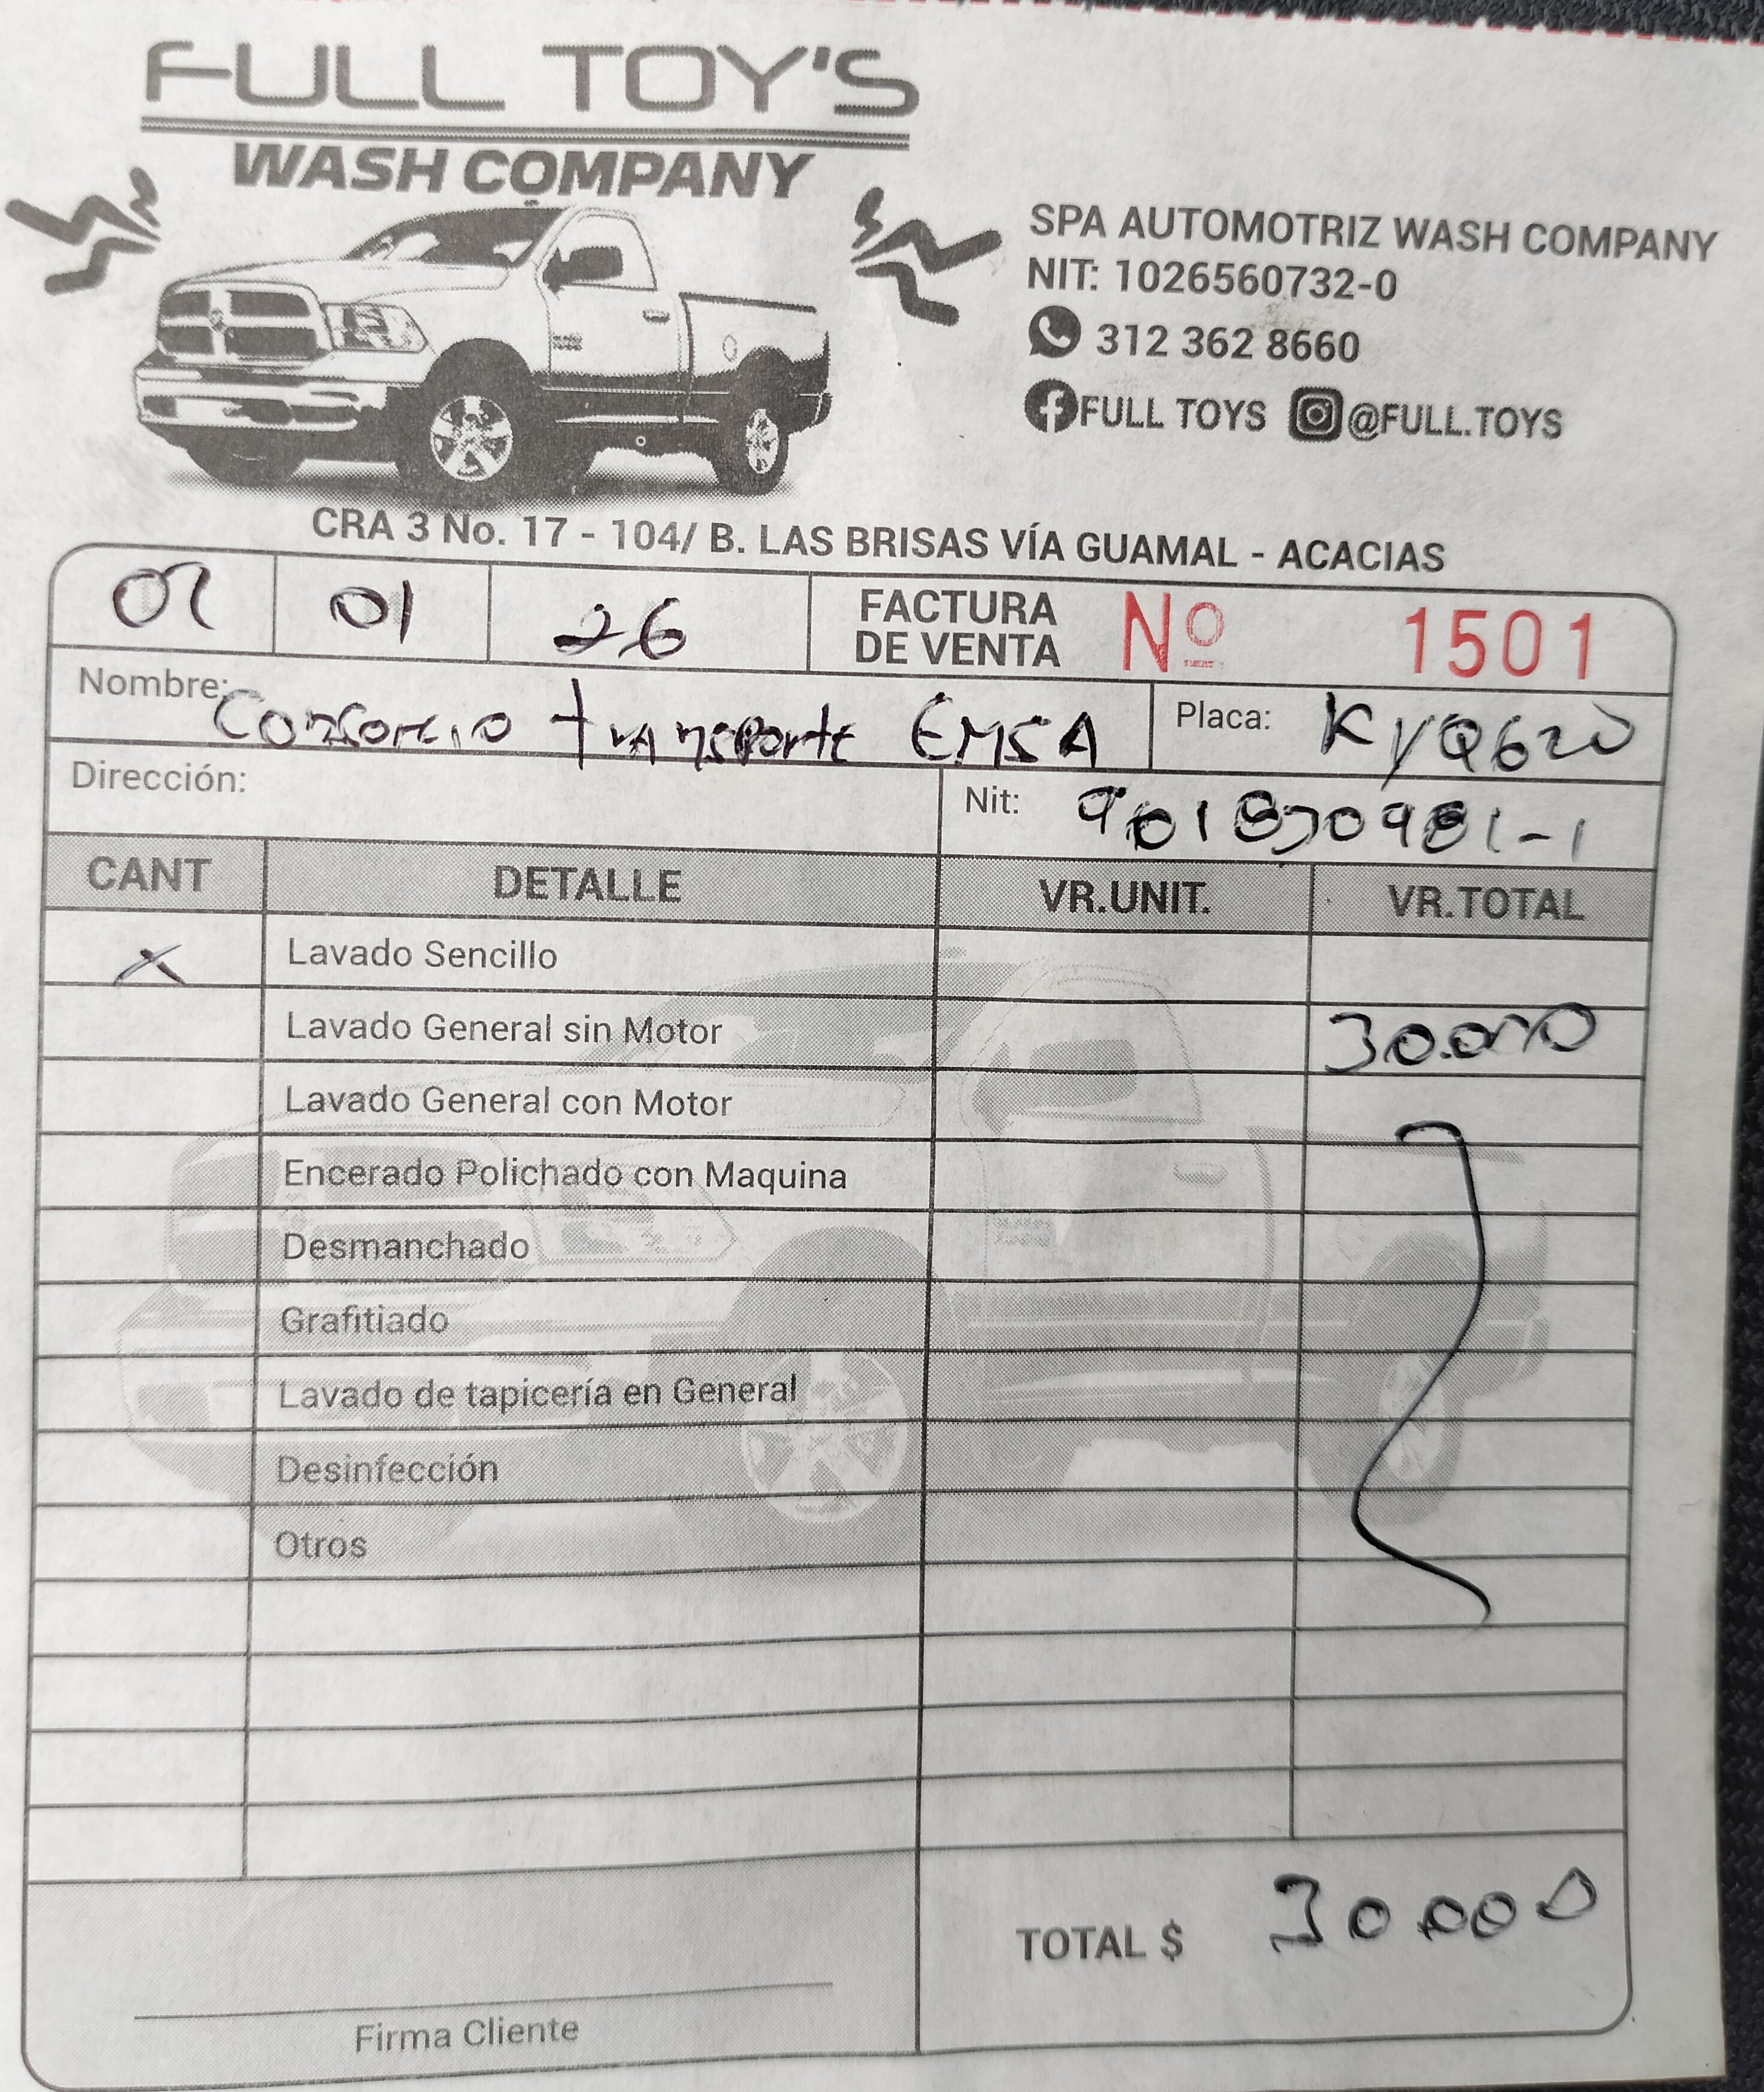 FULL TOY'S
WASH COMPANY
SPA AUTOMOTRIZ WASH COMPANY
NIT: 1026560732-0
312 362 8660
FULL TOYS @FULL.TOYS
CRA 3 No. 17 - 104/ B. LAS BRISAS VÍA GUAMAL - ACACIAS
01 26 FACTURA DE VENTA Nº 1501
Nombre: Consorcio transporte EMSA Placa: KYQ620
Dirección: Nit:
CANT DETALLE VR.UNIT. VR.TOTAL
X Lavado Sencillo
Lavado General sin Motor 30.000
Lavado General con Motor
Encerado Polichado con Maquina
Desmanchado
Grafitiado
Lavado de tapicería en General
Desinfección
Otros
TOTAL $ 30000
Firma Cliente